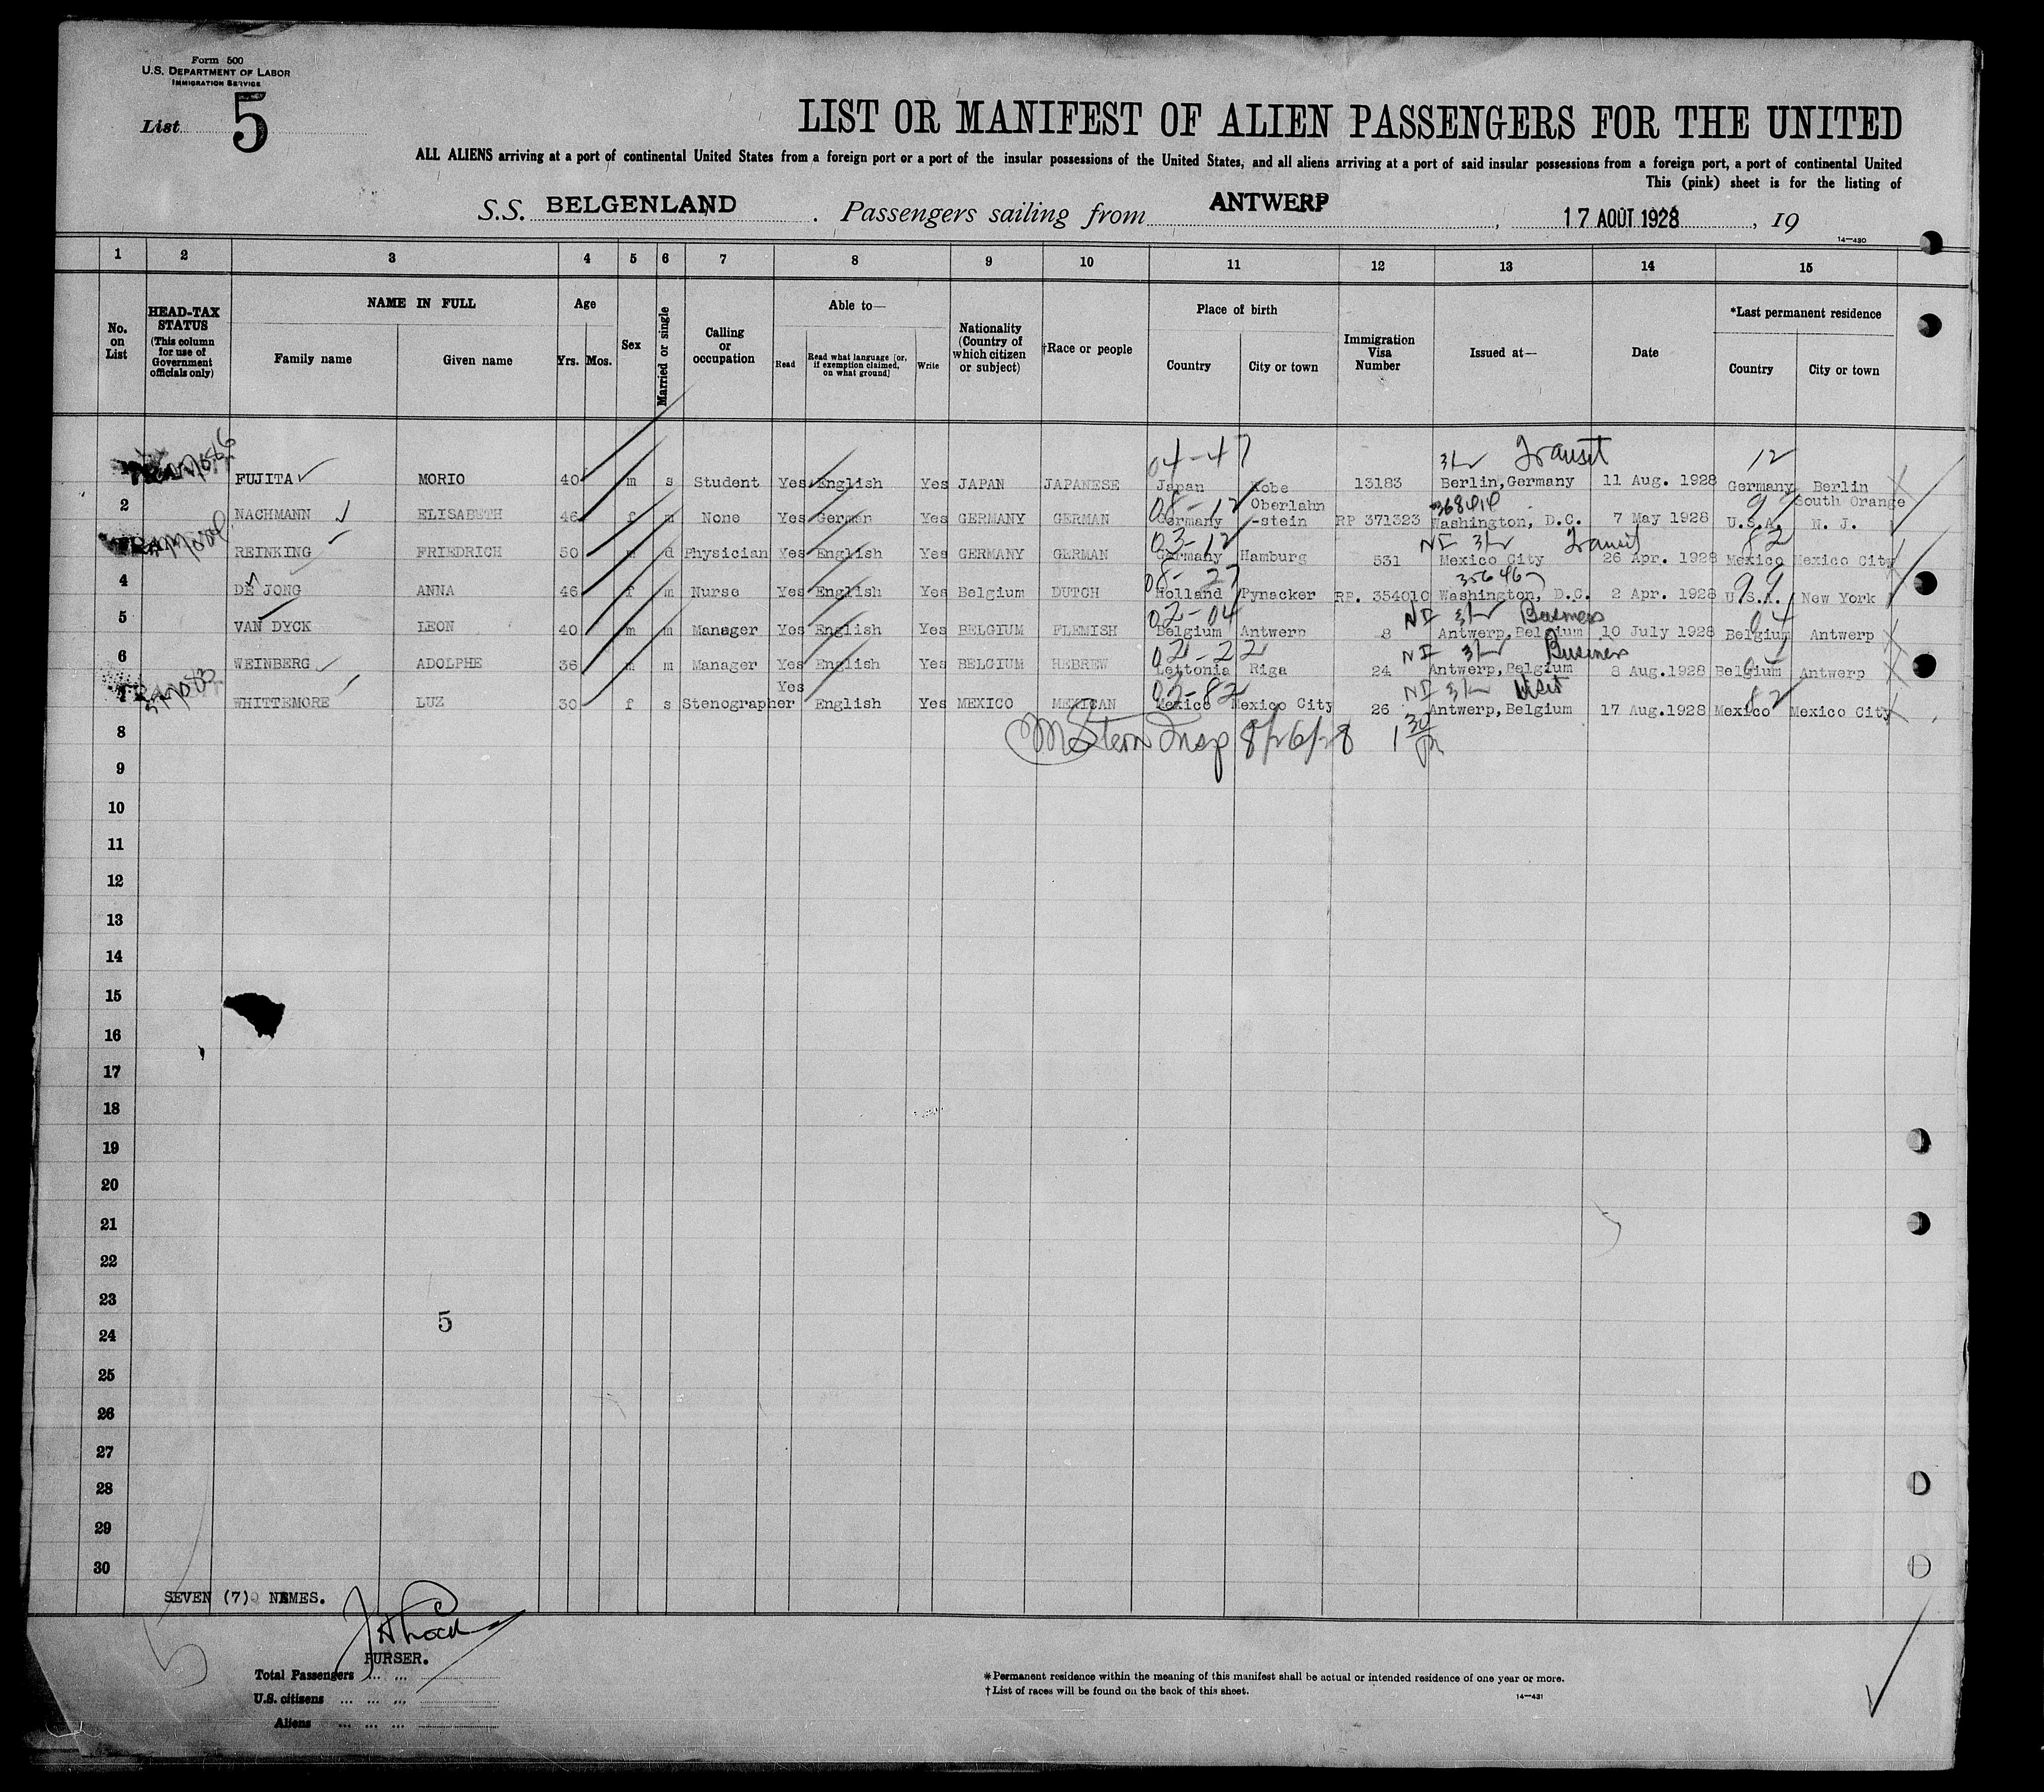 Form 500
U.S. DEPARTMENT OF LABOR
IMMIGRATION SERVICE
List 5
LIST OR MANIFEST OF ALIEN PASSENGERS FOR THE UNITED
ALL ALIENS arriving at a port of continental United States from a foreign port or a port of the insular possessions of the United States, and all aliens arriving at a port of said insular possessions from a foreign port, a port of continental United
This (pink) sheet is for the listing of
S.S. BELGENLAND . Passengers sailing from ANTWERP , 17 AOUT 1928 , 19
14—430
1 2 3 4 5 6 7 8 9 10 11 12 13 14 15
No. on List
HEAD-TAX STATUS (This column for use of Government officials only)
NAME IN FULL
Family name Given name
Age
Yrs. Mos.
Sex
Married or single
Calling or occupation
Able to—
Read Read what language [or, if exemption claimed, on what ground] Write
Nationality (Country of which citizen or subject)
†Race or people
Place of birth
Country City or town
Immigration Visa Number
Issued at—
Date
*Last permanent residence
Country City or town
04-47 Transit 12
FUJITA MORIO 40 m s Student Yes English Yes JAPAN JAPANESE Japan Kobe 13183 Berlin,Germany 11 Aug. 1928 Germany Berlin
08-12 99
2 NACHMANN ELISABETH 46 f m None Yes German Yes GERMANY GERMAN Germany Oberlahn-stein RP 371323 Washington, D.C. 7 May 1928 U.S.A. South Orange N. J.
03-12 NI Transit 82
REINKING FRIEDRICH 50 m d Physician Yes English Yes GERMANY GERMAN Germany Hamburg 531 Mexico City 26 Apr. 1928 Mexico Mexico City
08-27 99
4 DE JONG ANNA 46 f m Nurse Yes English Yes Belgium DUTCH Holland Pynacker RP. 354010 Washington, D.C. 2 Apr. 1928 U.S.A. New York
02-04 NI Business 04
5 VAN DYCK LEON 40 m m Manager Yes English Yes BELGIUM FLEMISH Belgium Antwerp 8 Antwerp,Belgium 10 July 1928 Belgium Antwerp
02-22 NI Business
6 WEINBERG ADOLPHE 36 m m Manager Yes English Yes BELGIUM HEBREW Lettonia Riga 24 Antwerp,Belgium 8 Aug.1928 Belgium Antwerp
02-82 NI Visit 82
WHITTEMORE LUZ 30 f s Stenographer Yes English Yes MEXICO MEXICAN Mexico Mexico City 26 Antwerp,Belgium 17 Aug.1928 Mexico Mexico City
8 M Stern Insp 8/26/28 1 30
9
10
11
12
13
14
15
16
17
18
19
20
21
22
23
5
24
25
26
27
28
29
30
SEVEN (7) NAMES.
PURSER.
Total Passengers ... ...
U.S. citizens ... ... ...
Aliens ... ... ...
*Permanent residence within the meaning of this manifest shall be actual or intended residence of one year or more.
†List of races will be found on the back of this sheet.
14—431